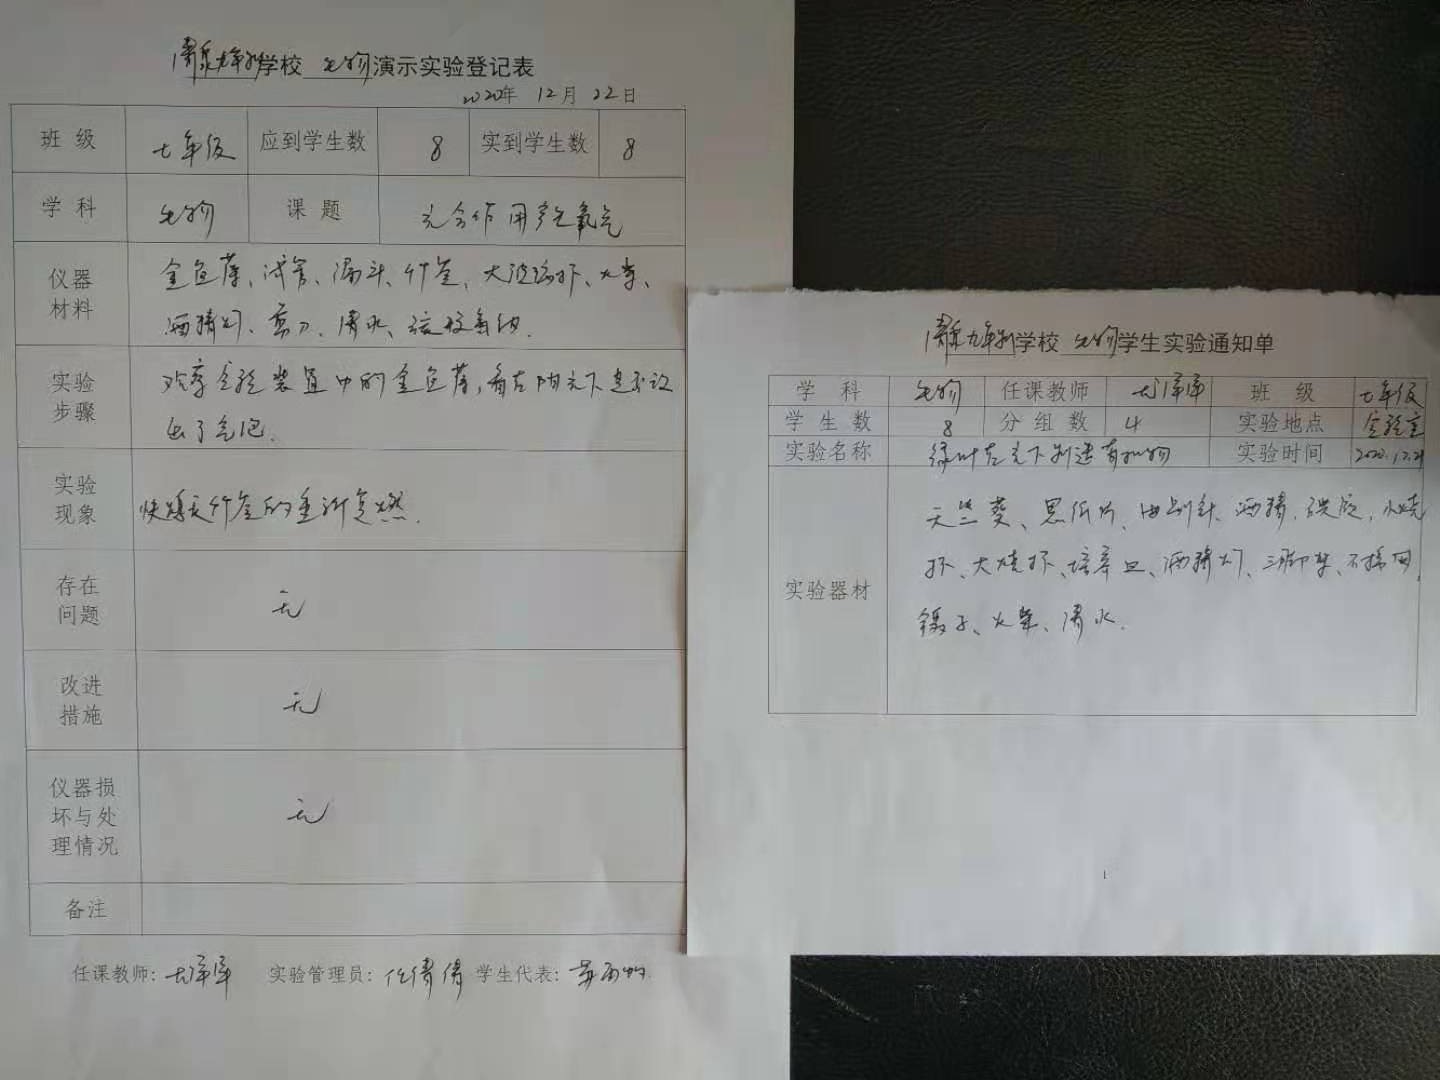 清泉九年制学校 生物 演示实验登记表
2020年 12月 22日
班 级 七年级 应到学生数 8 实到学生数 8
学 科 生物 课 题 光合作用产生氧气
仪器材料 金鱼藻、试管、漏斗、竹签、大玻璃杯、火柴、
酒精灯、剪刀、清水、
实验步骤 观察实验装置中的金鱼藻,看在阳光下是否放
出了气泡.
实验现象 快熄灭竹签的重新复燃.
存在问题 无
改进措施 无
仪器损坏与处理情况 无
备注
任课教师: 实验管理员: 倩倩 学生代表:
清泉九年制学校 生物 学生实验通知单
学 科 生物 任课教师 班 级 七年级
学 生 数 8 分 组 数 4 实验地点 实验室
实验名称 绿叶在光下制造有机物 实验时间 2020.12.21
实验器材 天竺葵、黑纸片、曲别针、酒精、碘液、小烧
杯、大烧杯、培养皿、酒精灯、三脚架、石棉网、
镊子、火柴、清水.
1